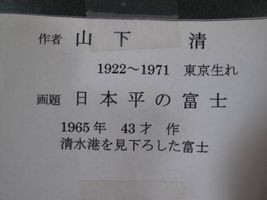 作者 山下 清
1922～1971 東京生れ
画題 日本平の富士
1965年 43才 作
清水港を見下ろした富士